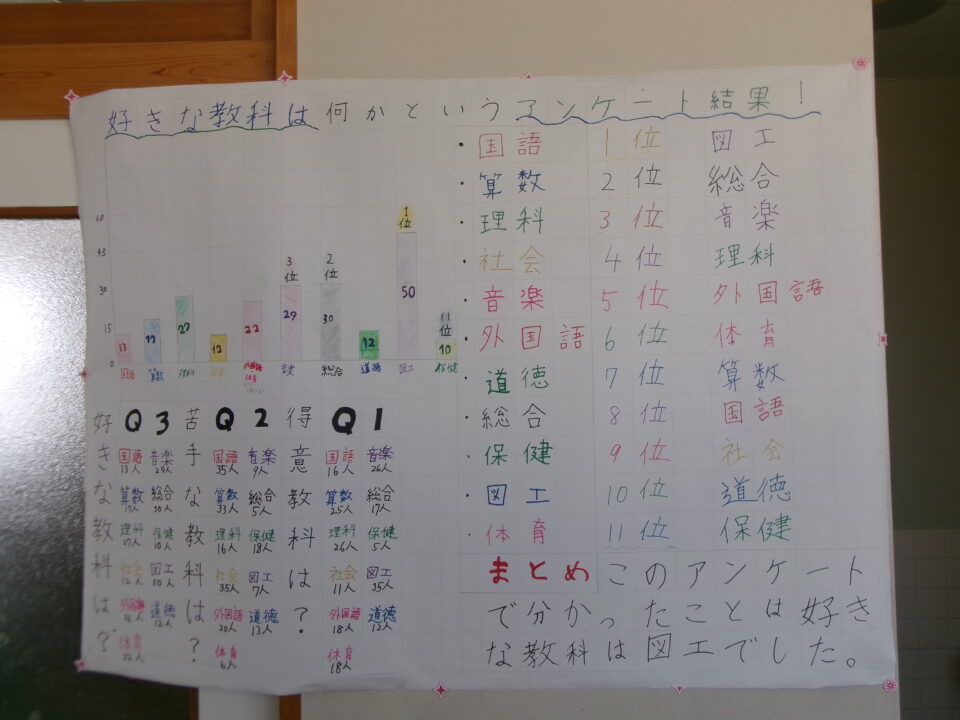 好きな教科は何かというアンケート結果！
60
45
30
15
0
13
17
27
12
22
3位
29
2位
30
12
1位
50
11位
10
国語
算数
理科
社会
音楽
総合
道徳
図工
保健
・国語
・算数
・理科
・社会
・音楽
・外国語
・道徳
・総合
・保健
・図工
・体育
1位 図工
2位 総合
3位 音楽
4位 理科
5位 外国語
6位 体育
7位 算数
8位 国語
9位 社会
10位 道徳
11位 保健
Q1
得意教科は？
国語 16人
音楽 26人
算数 25人
総合 17人
理科 26人
保健 5人
社会 11人
図工 35人
外国語 18人
道徳 12人
体育 18人
Q2
苦手な教科は？
国語 35人
音楽 9人
算数 33人
総合 5人
理科 16人
保健 18人
社会 35人
図工 7人
外国語 20人
道徳 13人
体育 6人
Q3
好きな教科は？
国語 13人
音楽 29人
算数 17人
総合 30人
理科 27人
保健 10人
社会 12人
図工 50人
外国語
道徳 12人
体育
まとめ このアンケート
で分かったことは好き
な教科は図工でした。